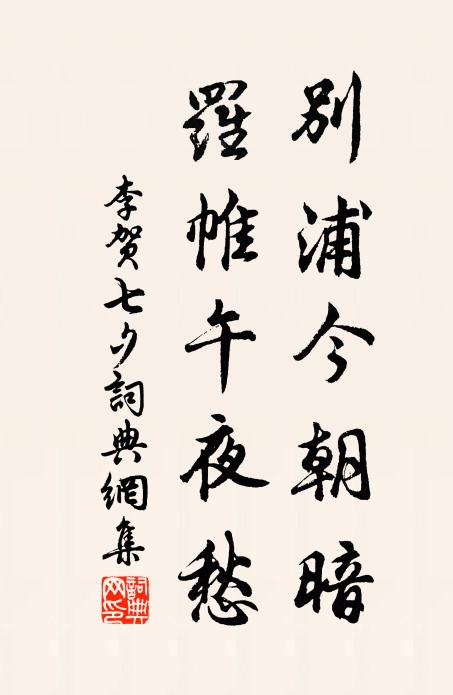 別浦今朝暗
羅帷午夜愁
李賀七夕詞典網集
詞典网印